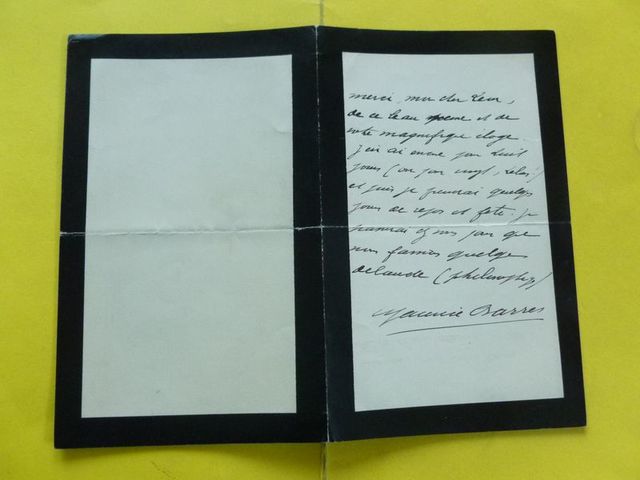 merci, mon cher Leon,
de ce beau poeme et de
votre magnifique eloge
j'en ai encore pour huit
jours (ou pour vingt, helas!)
et puis je prendrai quelques
jours de repos et fete. je
par que
nous quelque
(philosophique)
Maurice Barrès